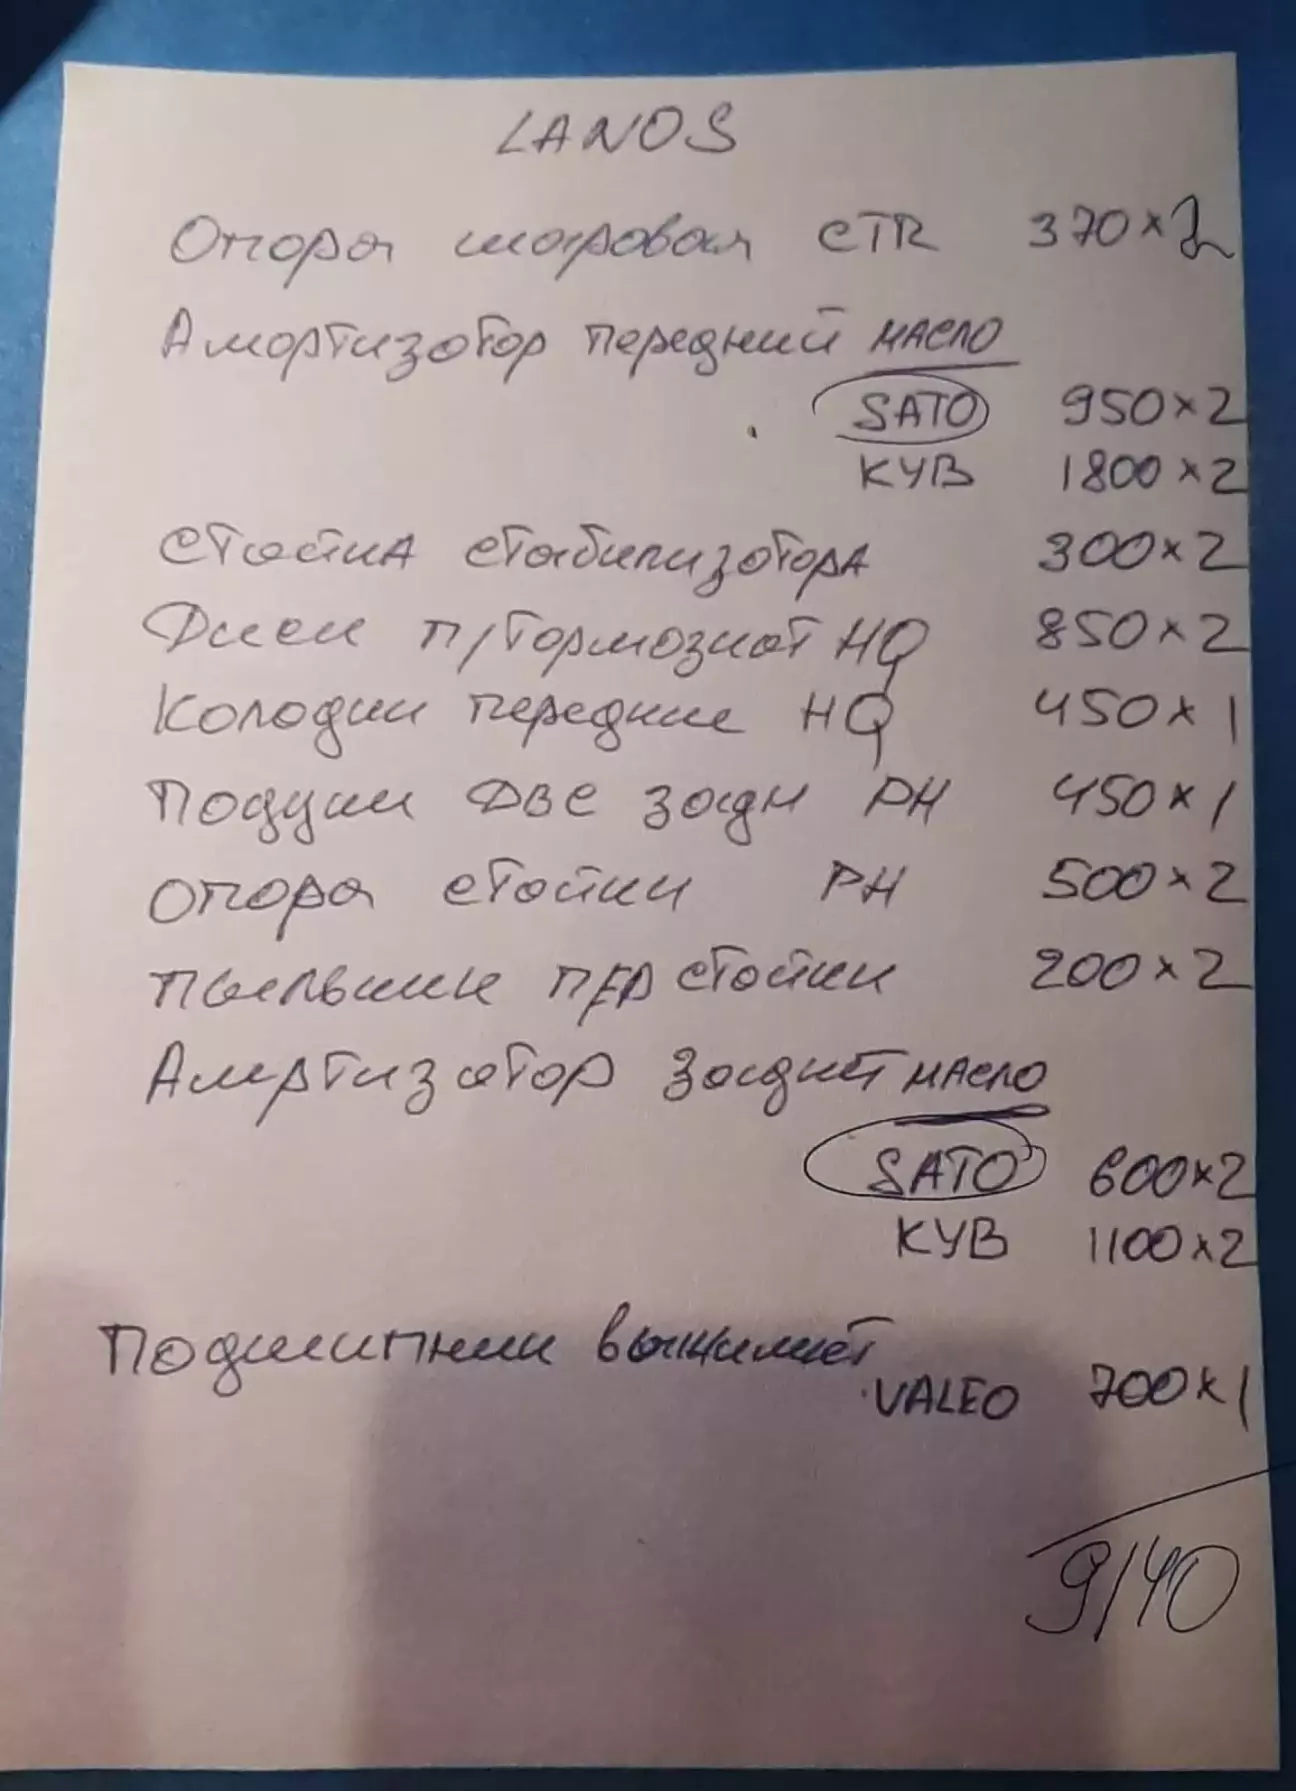 LANOS
Опора шаровая CTR 370×2
Амортизатор передний масло
SATO 950×2
KYB 1800×2
Стойка стабилизатора 300×2
Диски п/тормозной HQ 850×2
Колодки передние HQ 450×1
Подушки ДВС задн PH 450×1
Опора стойки PH 500×2
Пыльники ПЕР стойки 200×2
Амртизатор задний масло
SATO 600×2
KYB 1100×2
Подшипник выжимной
VALEO 700×1
9140